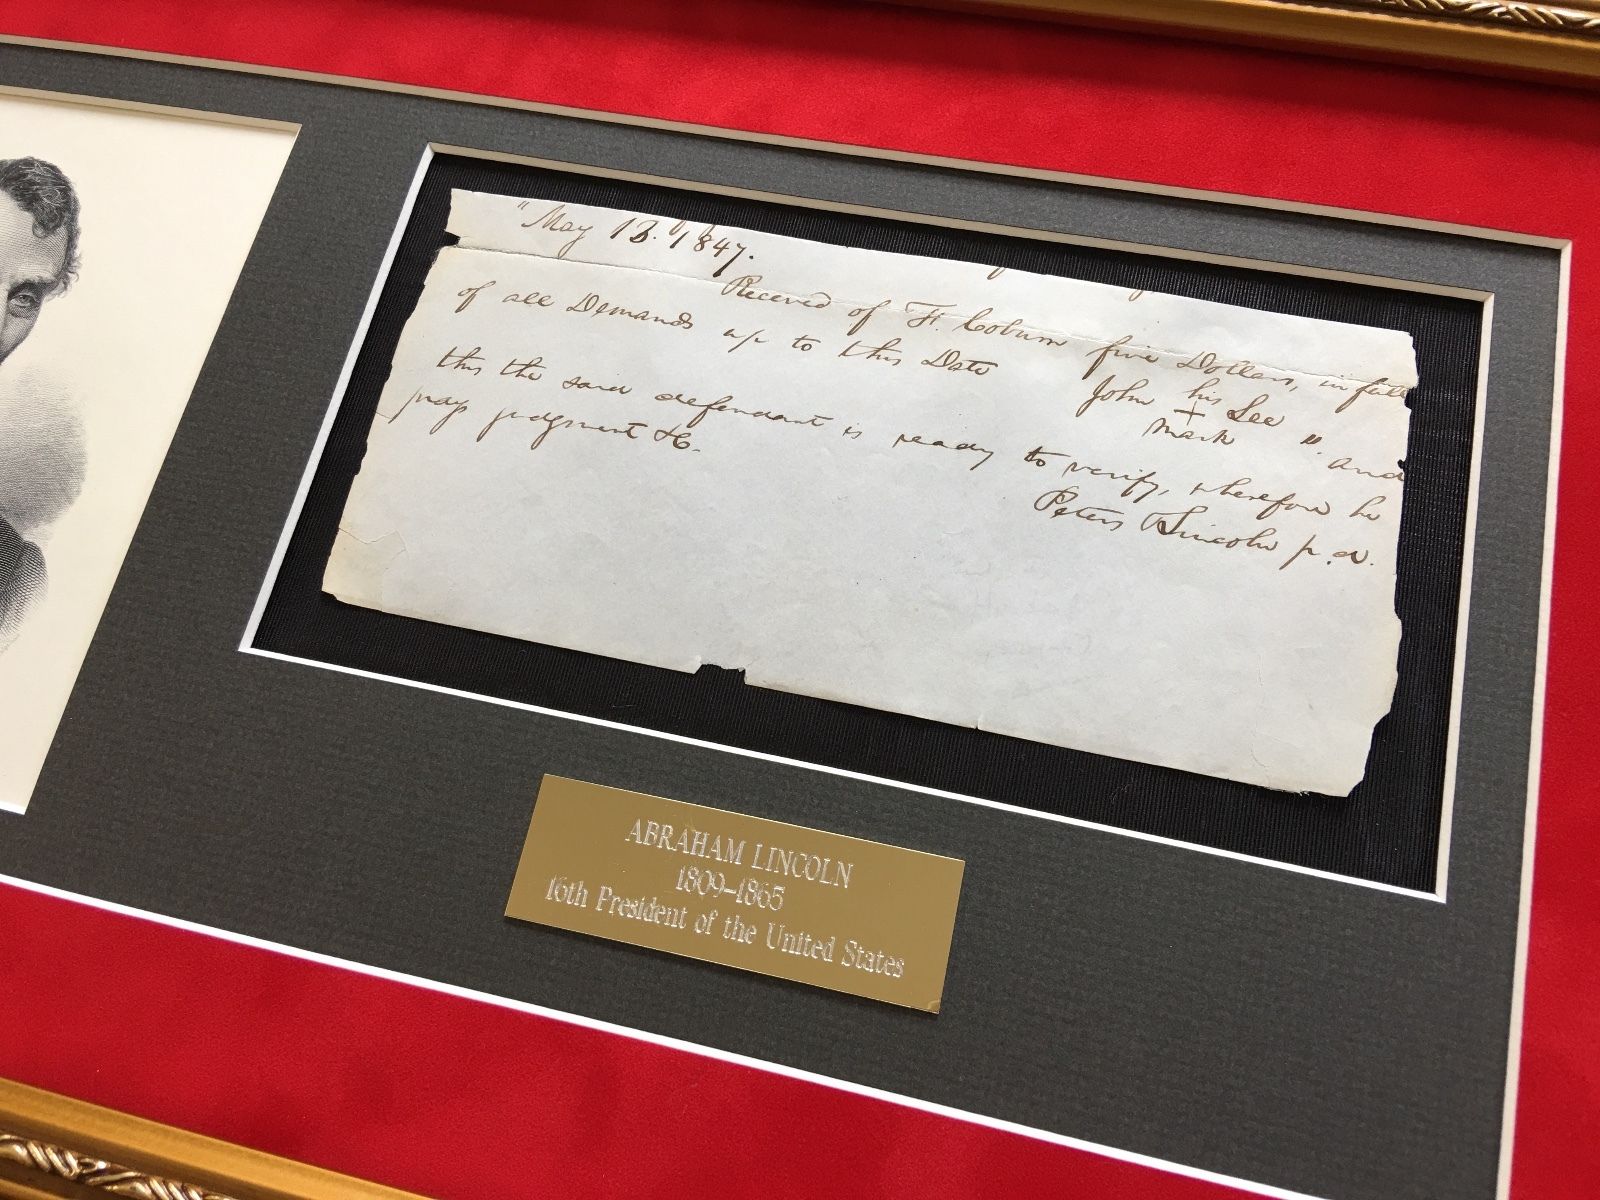 "May 13. 1847.
Received of F. Coburn five Dollars, in full
of all Demands up to this Date
John his Lee "
+
mark
and
this the said defendant is ready to verify, wherefore he
prays judgment &c.
Peters & Lincoln p.d.
ABRAHAM LINCOLN
1809-1865
16th President of the United States